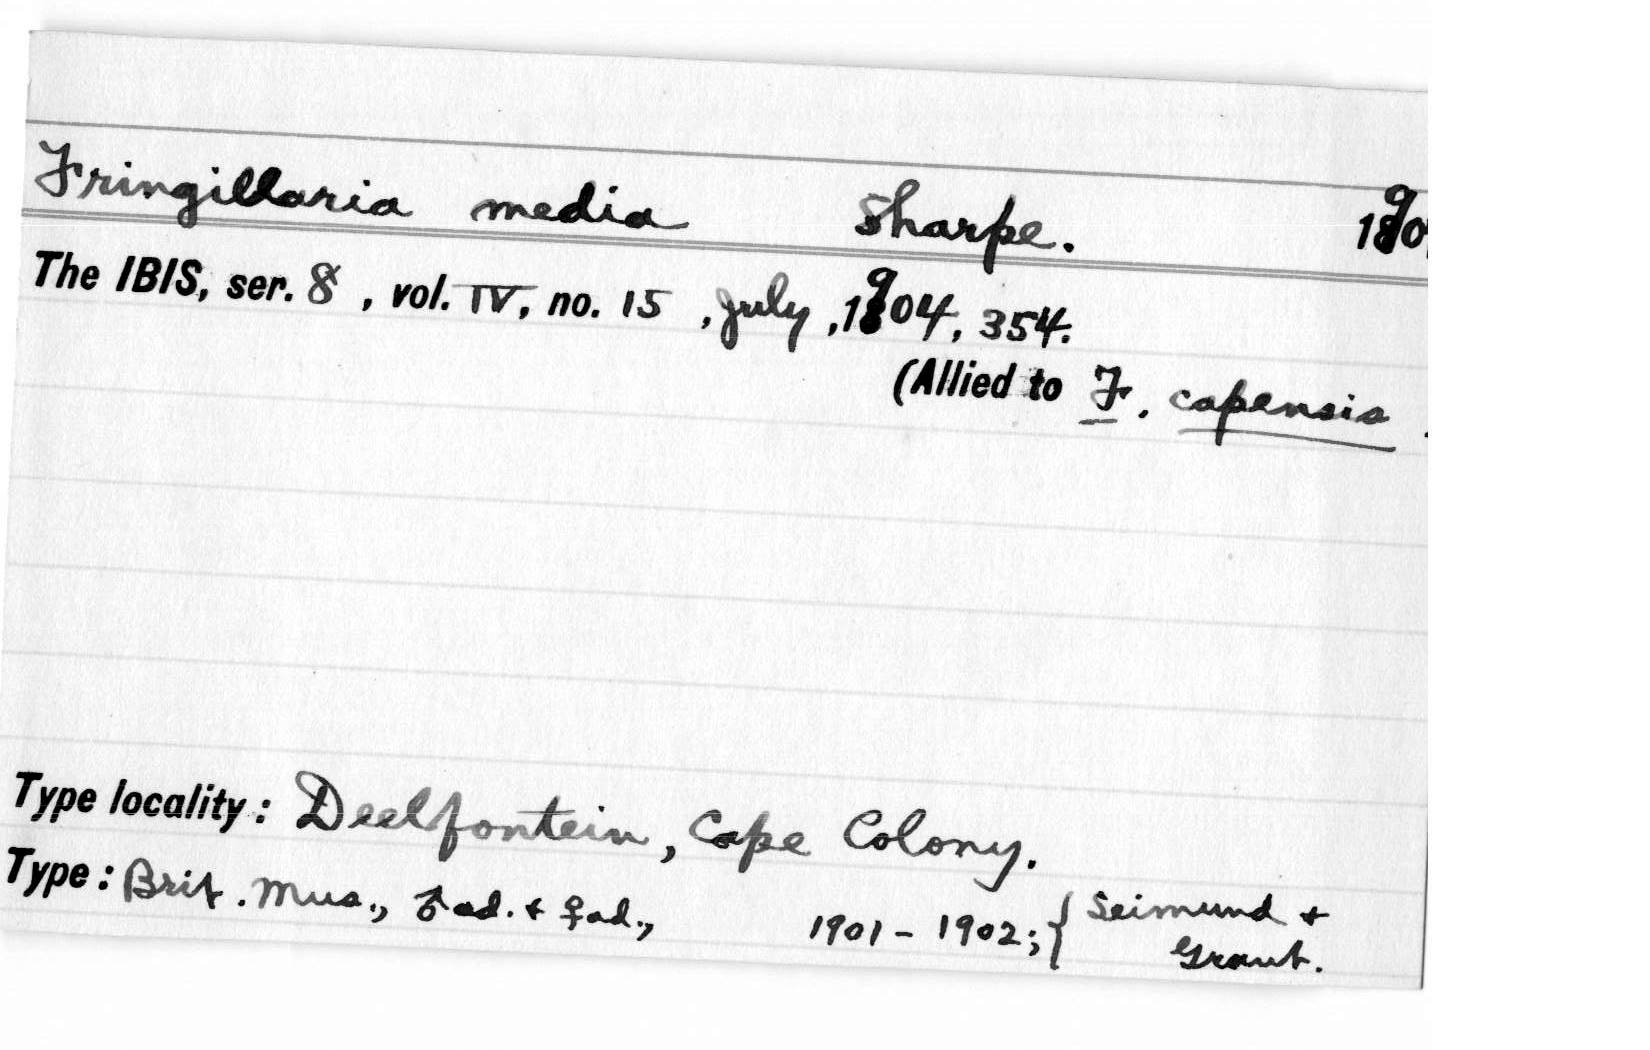 Fringillaria media Sharpe. 190
The IBIS, ser. 8, vol. IV, no. 15, July, 1904, 354.
(Allied to F. capensis.
Type locality: Deelfontein, Cape Colony.
Type: Brit. Mus., ♂ ad. + ♀ ad., 1901-1902; { Seimund +
Grant.